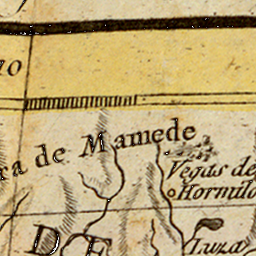 ra de Mamede
Vegas de
Hormilo
D E
Tuza